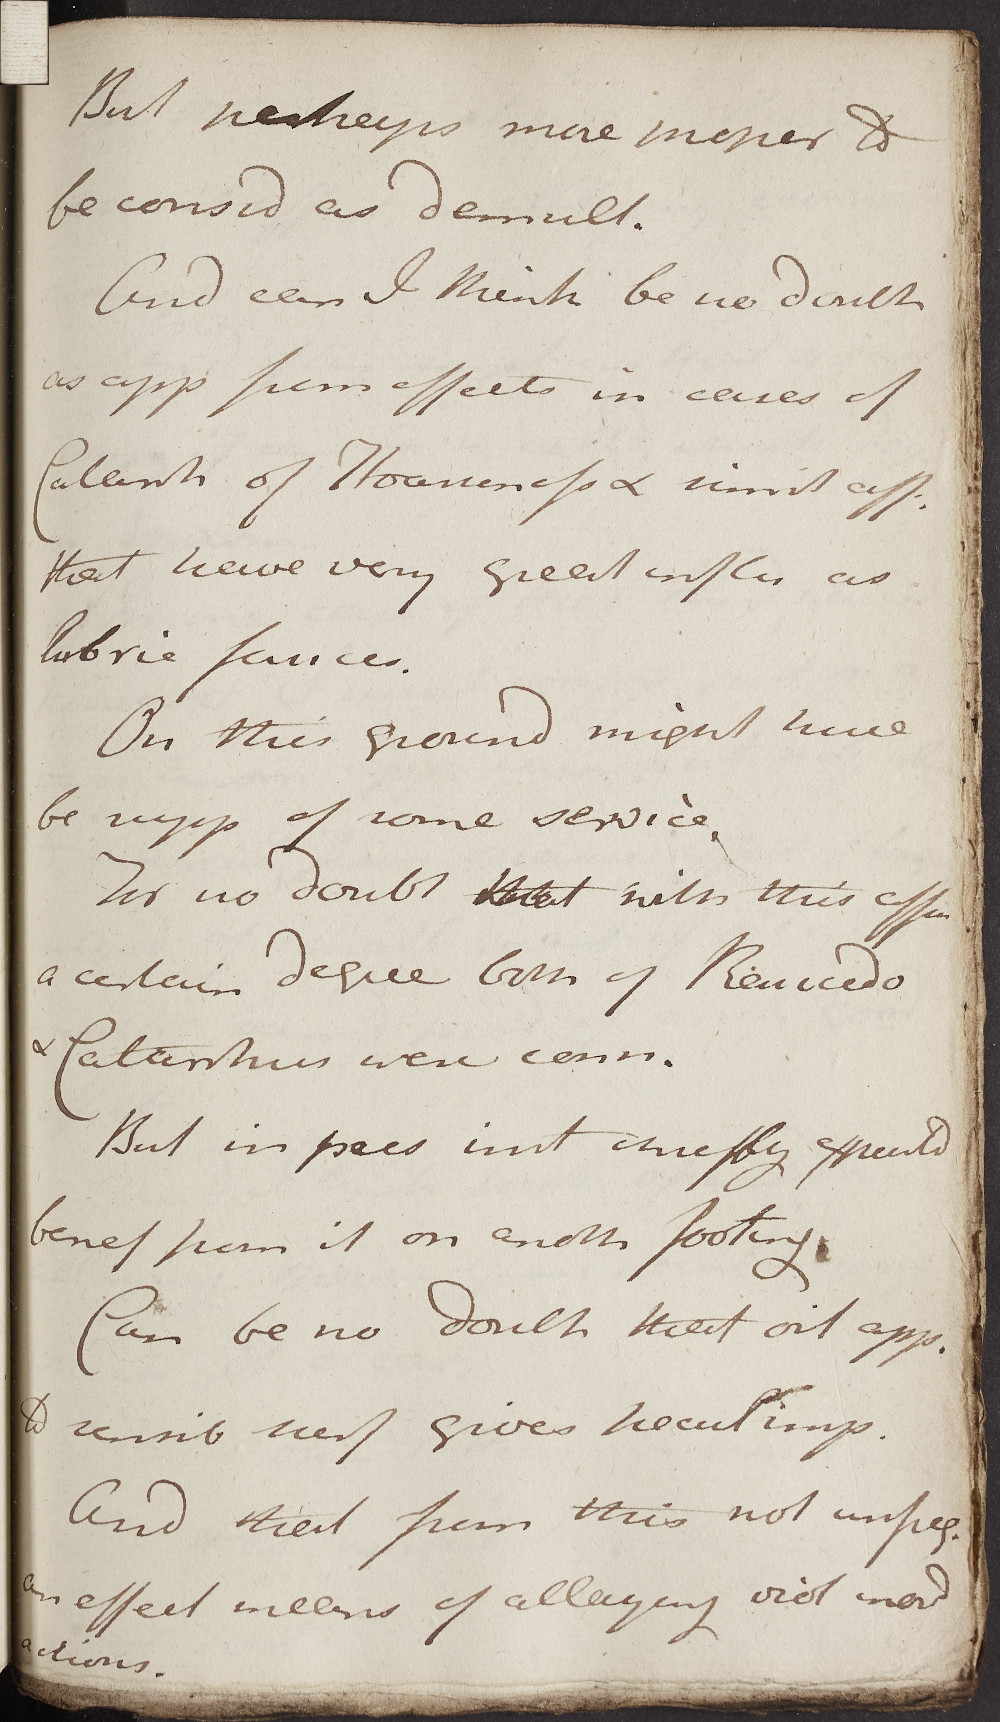 But perhaps more proper to
be consid as demult.
And can I think be no doubt
as app from effects in cases of
Catarrh of Hoarseness & simil aff.
that have very great influ as
lubric fauces.
On this ground might have
be supp of some service.
For no doubt that with this affn
a certain degree both of Raucedo
& Catarrhus were conn.
But in pres inst chiefly expected
benef from it on anoth footing.
Can be no doubt that oil app.
to sensib surf gives peculimp.
And that from this not unfreq.
an effect means of allaying viol mord
actions.